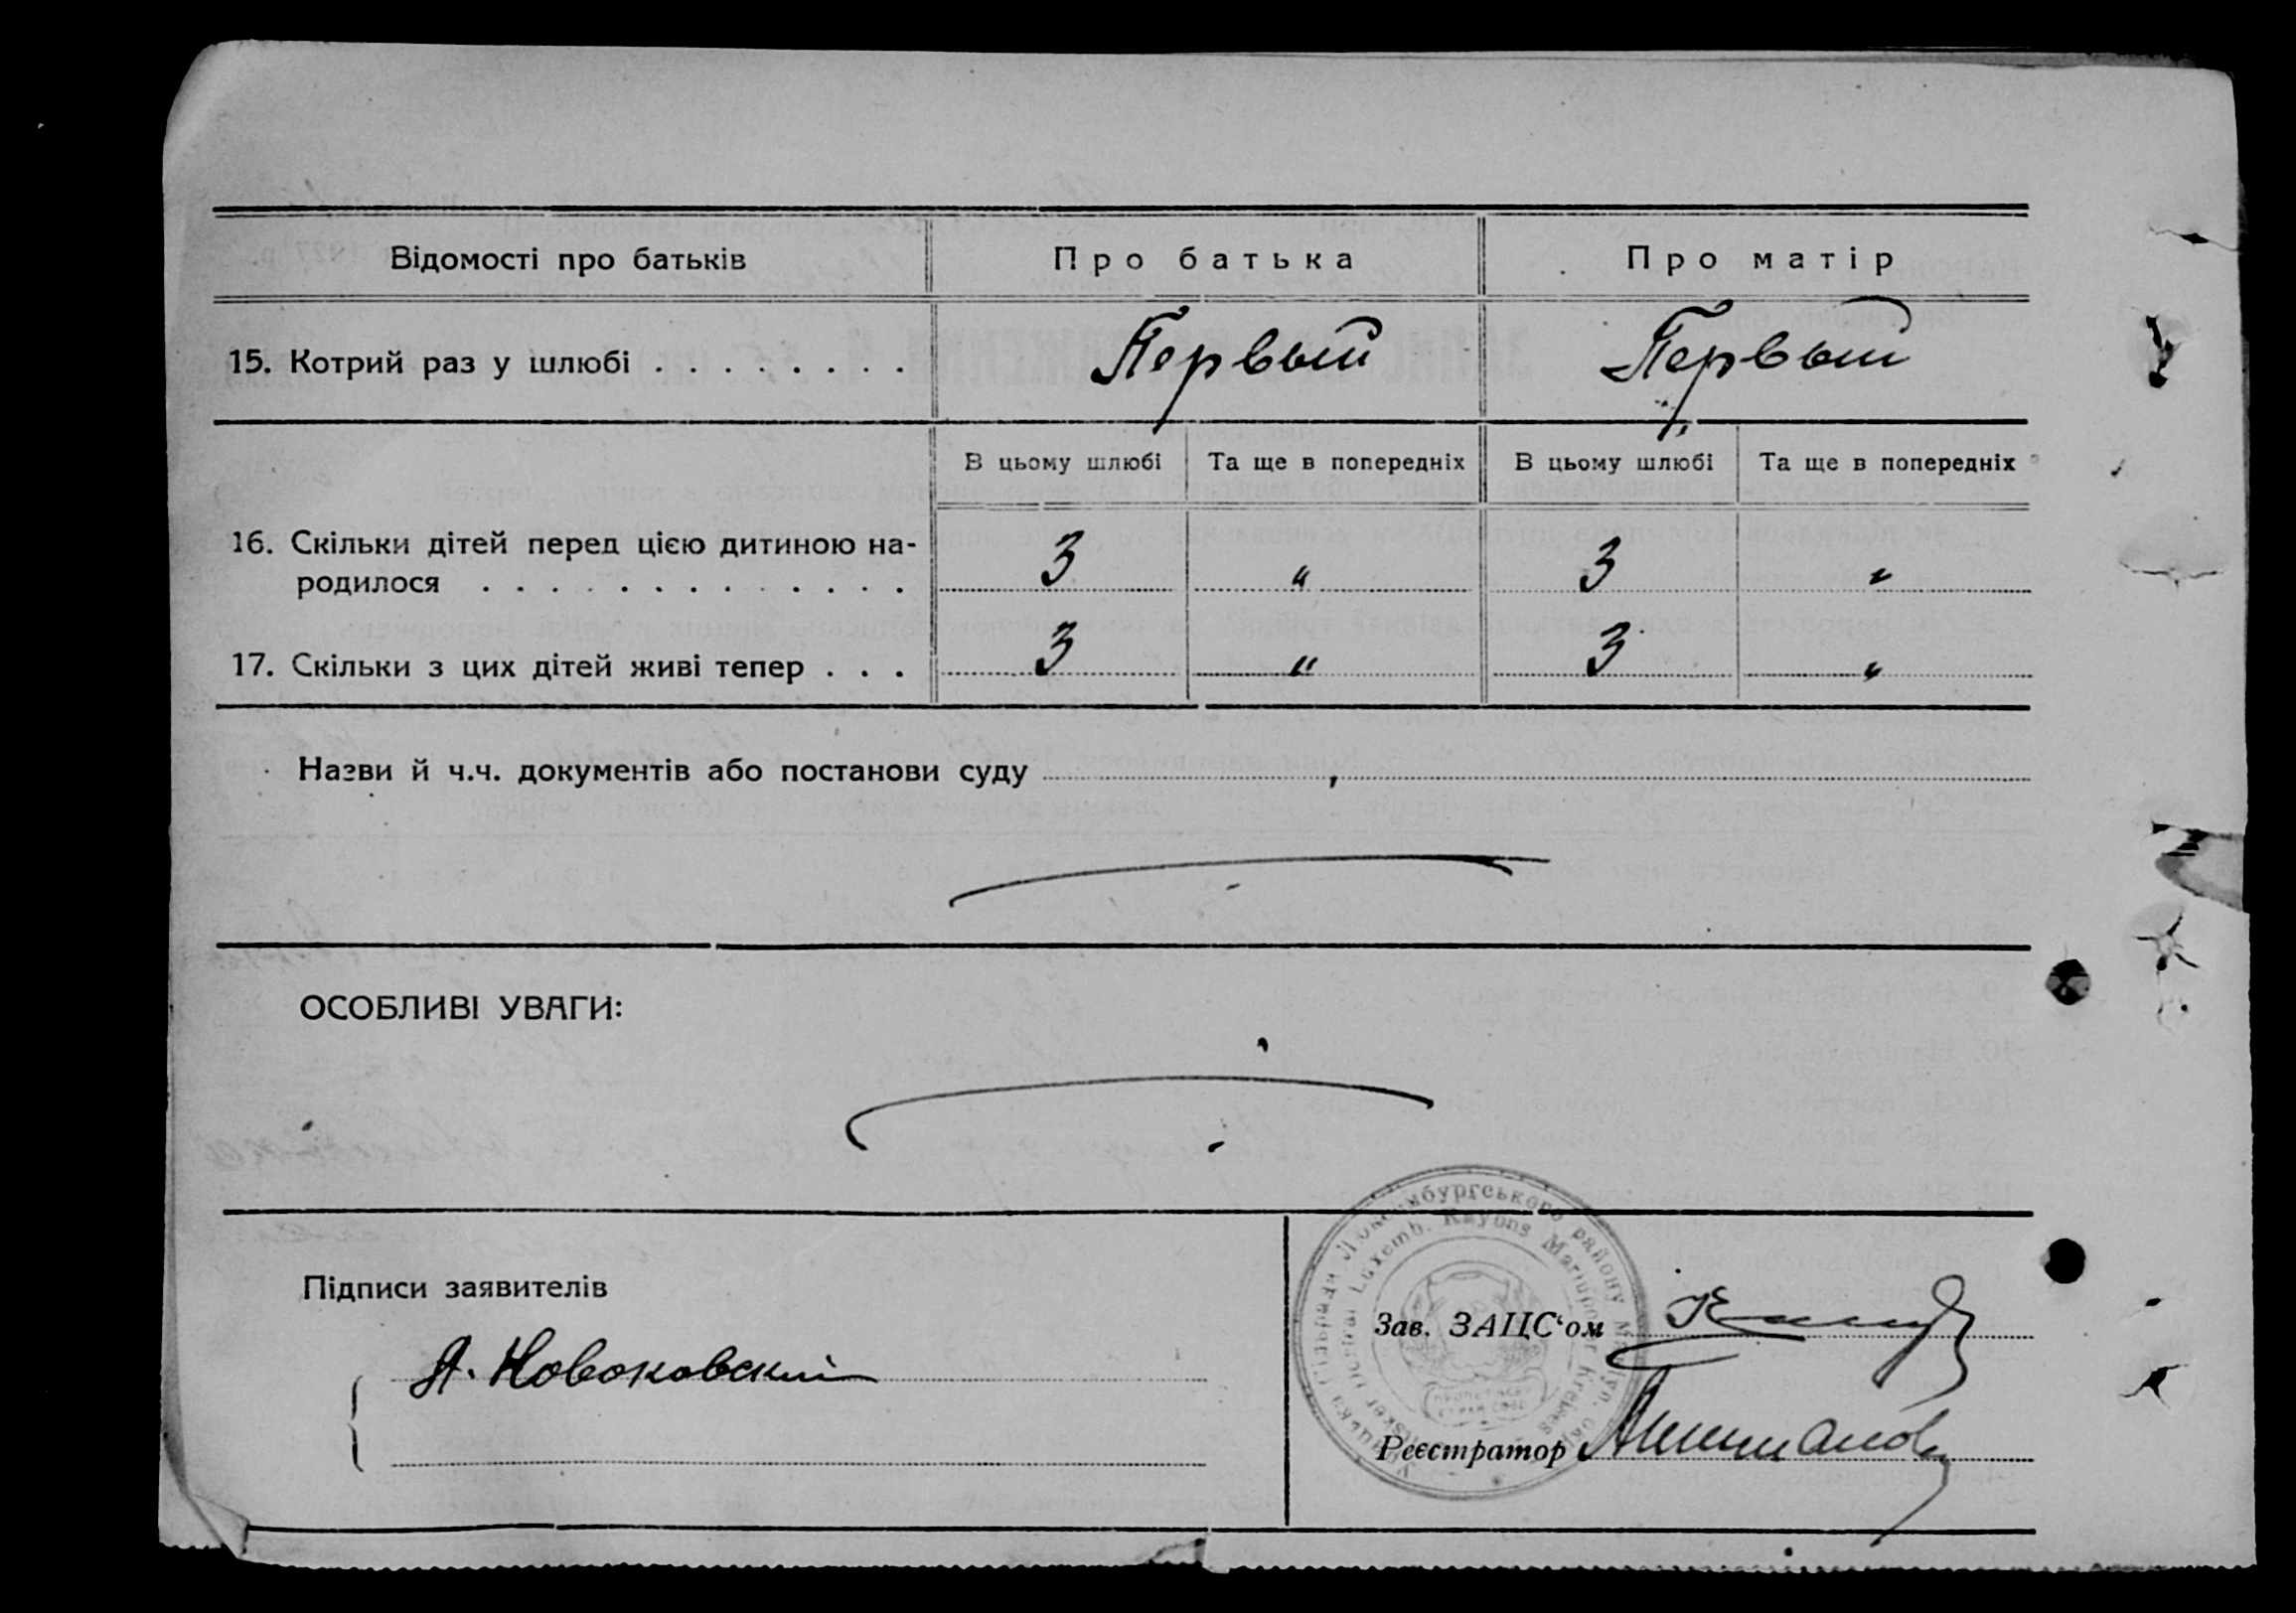 Відомості про батьків
Про батька
Про матір
15. Котрий раз у шлюбі . . . . . . . .
Первый
Первый
В цьому шлюбі
Та ще в попередніх
В цьому шлюбі
Та ще в попередніх
16. Скільки дітей перед цією дитиною на-
родилося . . . . . . . . . . . . .
3
"
3
"
17. Скільки з цих дітей живі тепер . . .
3
"
3
"
Назви й ч.ч. документів або постанови суду
ОСОБЛИВІ УВАГИ:
Підписи заявителів
А. Новоковский
Люксембургського району
Luxemb. Rayons Mariupoler Kreises
Зав. ЗАЦС‘ом
Реєстратор